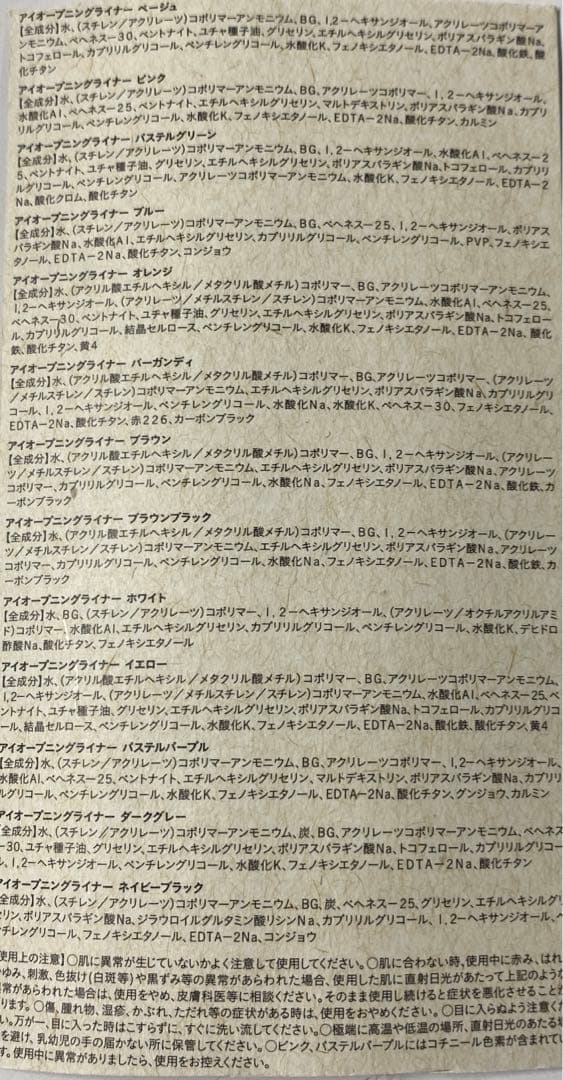 アイオープニングライナー ベージュ
【全成分】水、(スチレン／アクリレーツ)コポリマーアンモニウム、BG、1,2-ヘキサンジオール、アクリレーツコポリマーア
ンモニウム、ベヘネス-30、ベントナイト、ユチャ種子油、グリセリン、エチルヘキシルグリセリン、ポリアスパラギン酸Na、
トコフェロール、カプリリルグリコール、ペンチレングリコール、水酸化K、フェノキシエタノール、EDTA-2Na、酸化鉄、酸
化チタン
アイオープニングライナー ピンク
【全成分】水、(スチレン／アクリレーツ)コポリマーアンモニウム、BG、アクリレーツコポリマー、1,2-ヘキサンジオール、
水酸化Al、ベヘネス-25、ベントナイト、エチルヘキシルグリセリン、マルトデキストリン、ポリアスパラギン酸Na、カプリ
リルグリコール、ペンチレングリコール、水酸化K、フェノキシエタノール、EDTA-2Na、酸化チタン、カルミン
アイオープニングライナー パステルグリーン
【全成分】水、(スチレン／アクリレーツ)コポリマーアンモニウム、BG、1,2-ヘキサンジオール、水酸化Al、ベヘネス-2
5、ベントナイト、ユチャ種子油、グリセリン、エチルヘキシルグリセリン、ポリアスパラギン酸Na、トコフェロール、カプリリ
ルグリコール、ペンチレングリコール、アクリレーツコポリマーアンモニウム、水酸化K、フェノキシエタノール、EDTA-2
Na、酸化クロム、酸化チタン
アイオープニングライナー ブルー
【全成分】水、(スチレン／アクリレーツ)コポリマーアンモニウム、BG、ベヘネス-25、1,2-ヘキサンジオール、ポリアス
パラギン酸Na、水酸化Al、エチルヘキシルグリセリン、カプリリルグリコール、ペンチレングリコール、PVP、フェノキシエ
タノール、EDTA-2Na、酸化チタン、コンジョウ
アイオープニングライナー オレンジ
【全成分】水、(アクリル酸エチルヘキシル／メタクリル酸メチル)コポリマー、BG、アクリレーツコポリマーアンモニウム、
1,2-ヘキサンジオール、(アクリレーツ／メチルスチレン／スチレン)コポリマーアンモニウム、水酸化Al、ベヘネス-25、
ベヘネス-30、ベントナイト、ユチャ種子油、グリセリン、エチルヘキシルグリセリン、ポリアスパラギン酸Na、トコフェロー
ル、カプリリルグリコール、結晶セルロース、ペンチレングリコール、水酸化K、フェノキシエタノール、EDTA-2Na、酸化
鉄、酸化チタン、黄4
アイオープニングライナー バーガンディ
【全成分】水、(アクリル酸エチルヘキシル／メタクリル酸メチル)コポリマー、BG、アクリレーツコポリマー、(アクリレーツ
／メチルスチレン／スチレン)コポリマーアンモニウム、エチルヘキシルグリセリン、ポリアスパラギン酸Na、カプリリルグリ
コール、1,2-ヘキサンジオール、ペンチレングリコール、水酸化Na、水酸化K、ベヘネス-30、フェノキシエタノール、
EDTA-2Na、酸化チタン、赤226、カーボンブラック
アイオープニングライナー ブラウン
【全成分】水、(アクリル酸エチルヘキシル／メタクリル酸メチル)コポリマー、BG、1,2-ヘキサンジオール、(アクリレー
ツ／メチルスチレン／スチレン)コポリマーアンモニウム、エチルヘキシルグリセリン、ポリアスパラギン酸Na、アクリレーツ
コポリマー、カプリリルグリコール、ペンチレングリコール、水酸化Na、フェノキシエタノール、EDTA-2Na、酸化鉄、カ
ーボンブラック
アイオープニングライナー ブラウンブラック
【全成分】水、(アクリル酸エチルヘキシル／メタクリル酸メチル)コポリマー、BG、1,2-ヘキサンジオール、(アクリレー
ツ／メチルスチレン／スチレン)コポリマーアンモニウム、エチルヘキシルグリセリン、ポリアスパラギン酸Na、アクリレーツ
コポリマー、カプリリルグリコール、ペンチレングリコール、水酸化Na、フェノキシエタノール、EDTA-2Na、酸化鉄、カ
ーボンブラック
アイオープニングライナー ホワイト
【全成分】水、BG、(スチレン／アクリレーツ)コポリマー、1,2-ヘキサンジオール、(アクリレーツ／オクチルアクリルアミ
ド)コポリマー、水酸化Al、エチルヘキシルグリセリン、カプリリルグリコール、ペンチレングリコール、水酸化K、デヒドロ
酢酸Na、酸化チタン、フェノキシエタノール
アイオープニングライナー イエロー
【全成分】水、(アクリル酸エチルヘキシル／メタクリル酸メチル)コポリマー、BG、アクリレーツコポリマーアンモニウム、
1,2-ヘキサンジオール、(アクリレーツ／メチルスチレン／スチレン)コポリマーアンモニウム、水酸化Al、ベヘネス-25、ベ
ントナイト、ユチャ種子油、グリセリン、エチルヘキシルグリセリン、ポリアスパラギン酸Na、トコフェロール、カプリリルグリコ
ール、結晶セルロース、ペンチレングリコール、水酸化K、フェノキシエタノール、EDTA-2Na、酸化鉄、酸化チタン、黄4
アイオープニングライナー パステルパープル
【全成分】水、(スチレン／アクリレーツ)コポリマーアンモニウム、BG、アクリレーツコポリマー、1,2-ヘキサンジオール、
水酸化Al、ベヘネス-25、ベントナイト、エチルヘキシルグリセリン、マルトデキストリン、ポリアスパラギン酸Na、カプリリ
ルグリコール、ペンチレングリコール、水酸化K、フェノキシエタノール、EDTA-2Na、酸化チタン、グンジョウ、カルミン
アイオープニングライナー ダークグレー
【全成分】水、(スチレン／アクリレーツ)コポリマーアンモニウム、炭、BG、アクリレーツコポリマーアンモニウム、ベヘネス
-30、ユチャ種子油、グリセリン、エチルヘキシルグリセリン、ポリアスパラギン酸Na、トコフェロール、カプリリルグリコー
ル、1,2-ヘキサンジオール、ペンチレングリコール、水酸化K、フェノキシエタノール、EDTA-2Na、酸化チタン
アイオープニングライナー ネイビーブラック
全成分】水、(スチレン／アクリレーツ)コポリマーアンモニウム、BG、炭、ベヘネス-25、グリセリン、エチルヘキシルグリ
セリン、ポリアスパラギン酸Na、ジラウロイルグルタミン酸リシンNa、カプリリルグリコール、1,2-ヘキサンジオール、ペ
ンチレングリコール、フェノキシエタノール、EDTA-2Na、コンジョウ
使用上の注意】○肌に異常が生じていないかよく注意して使用してください。○肌に合わない時、使用中に赤み、はれ、
かゆみ、刺激、色抜け(白斑等)や黒ずみ等の異常があらわれた場合、使用した肌に直射日光があたって上記のような
異常があらわれた場合は、使用をやめ、皮膚科医等に相談ください。そのまま使用し続けると症状を悪化させることが
ります。○傷、腫れ物、湿疹、かぶれ、ただれ等の症状がある時は、使用をおやめください。○目に入らぬよう注意くだ
い。万が一、目に入った時はこすらずに、すぐに洗い流してください。○極端に高温や低温の場所、直射日光のあたる場
を避け、乳幼児の手の届かない所に保管してください。○ピンク、パステルパープルにはコチニール色素が含まれてい
す。使用中に異常がありましたら、使用をお控えください。